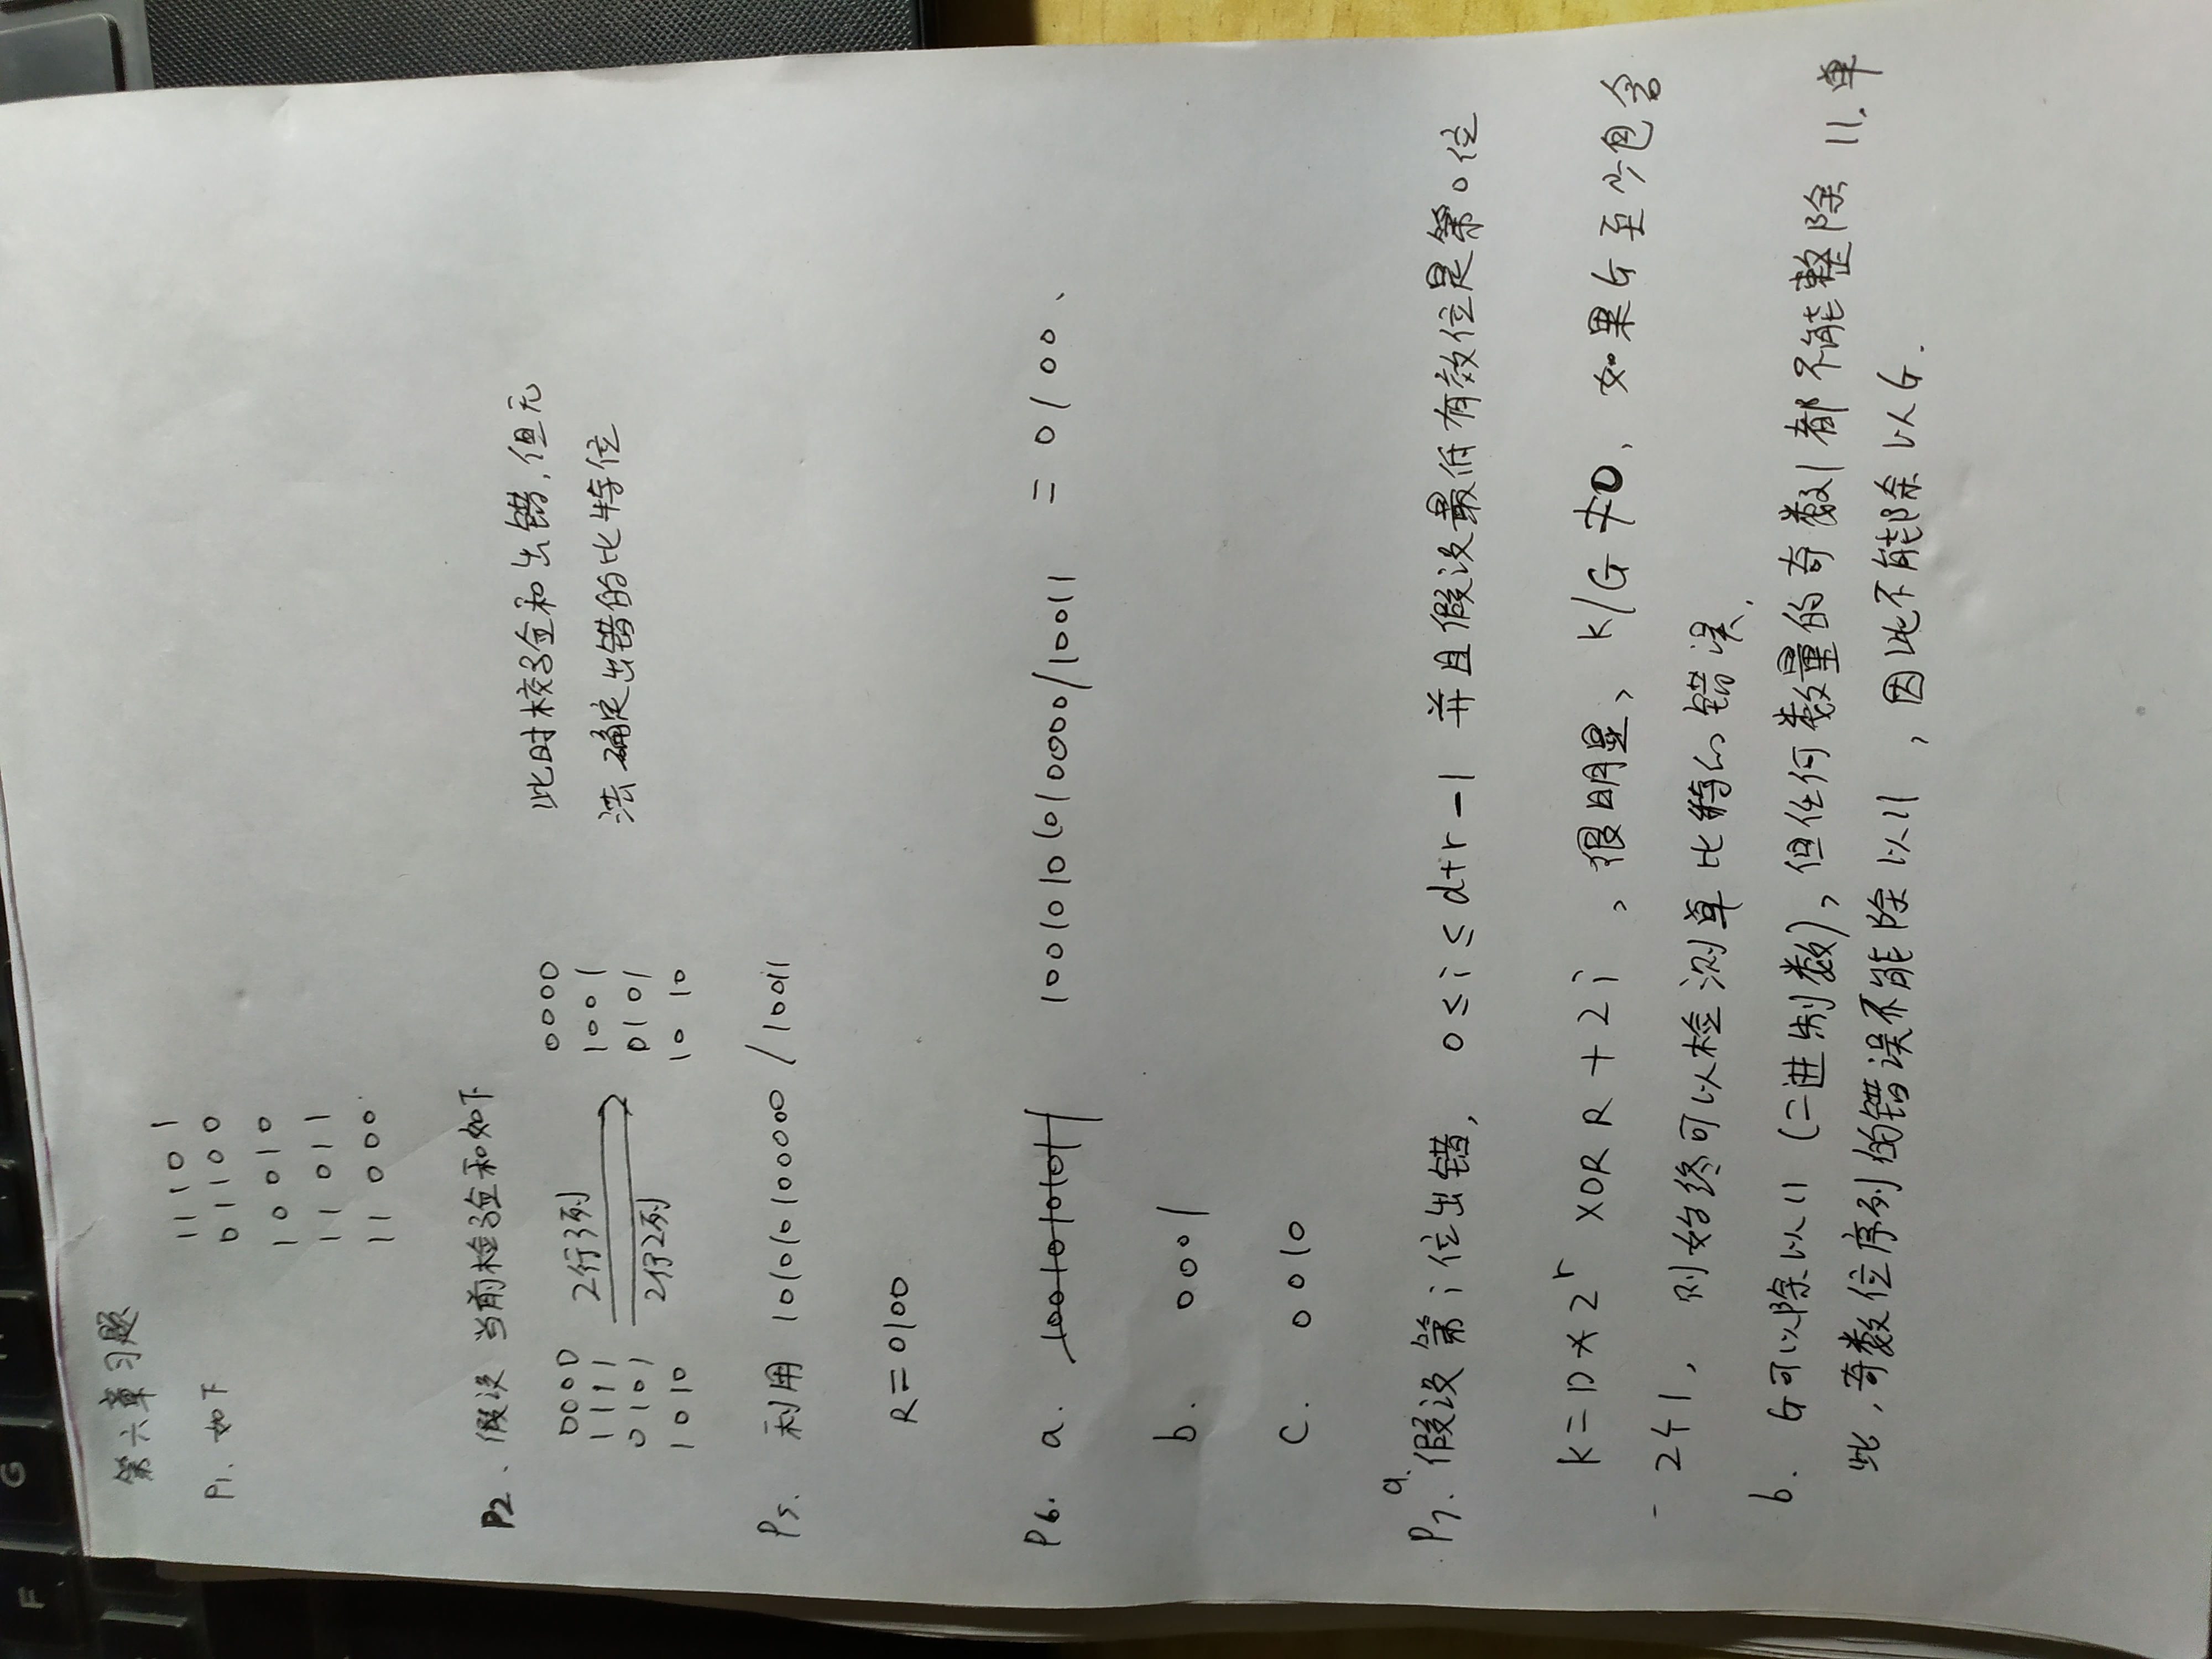 F
G
第六章习题
P1. 如下
11101
01100
10010
11011
11000
P2. 假设当前检验和如下
0000
1111
0101
1010
2行3列
2行2列
0000
1001
0101
1010
此时校验和出错,但无
法确定出错的比特位
P5. 利用 10101000000 / 10011
R=0100
P6. a. 1001010101 10010101010000/10011 = 0100.
b. 0001
c. 0010
P7. a. 假设第i位出错, 0≤i≤d+r-1 并且假设最低有效位是第0位
K=D*2^r XOR R+2i , 很明显, K/G≠0, 如果G至少包含
2个1, 则始终可以检测单比特的错误.
b. G可以除以11 (二进制数), 但任何数量的奇数1都不能整除11. 单
此, 奇数位序列的错误不能除以11, 因此不能除以G.